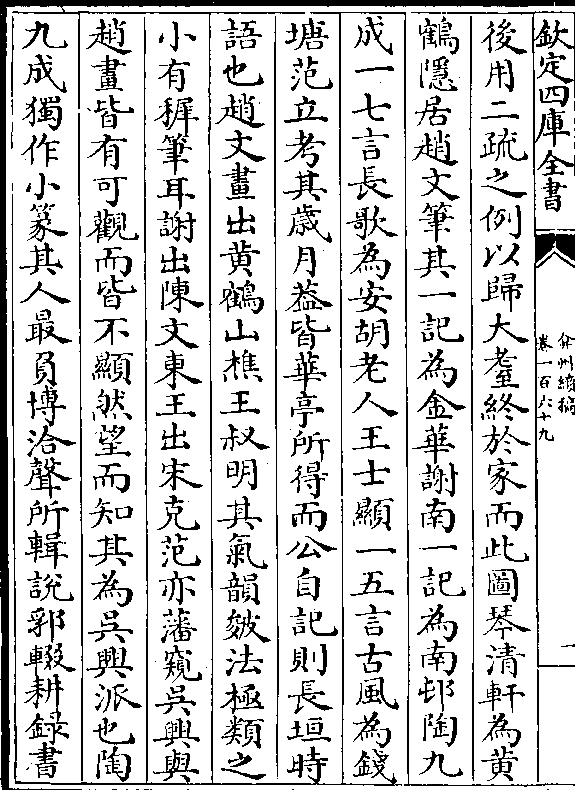 欽定四庫全書
弇州續稿
卷一百六十九
一
後用二疏之例以歸大耋終於家而此圖琴清軒為黄
鶴隱居趙文筆其一記為金華謝南一記為南邨陶九
成一七言長歌為安胡老人王士顯一五言古風為錢
塘范立考其歳月葢皆華亭所得而公自記則長垣時
語也趙文畫出黄鶴山樵王叔明其氣韻皴法極類之
小有穉筆耳謝出陳文東王出宋克范亦藩窺吳興與
趙畫皆有可觀而皆不顯然望而知其為吳興派也陶
九成獨作小篆其人最負博洽聲所輯説郛輟耕録書